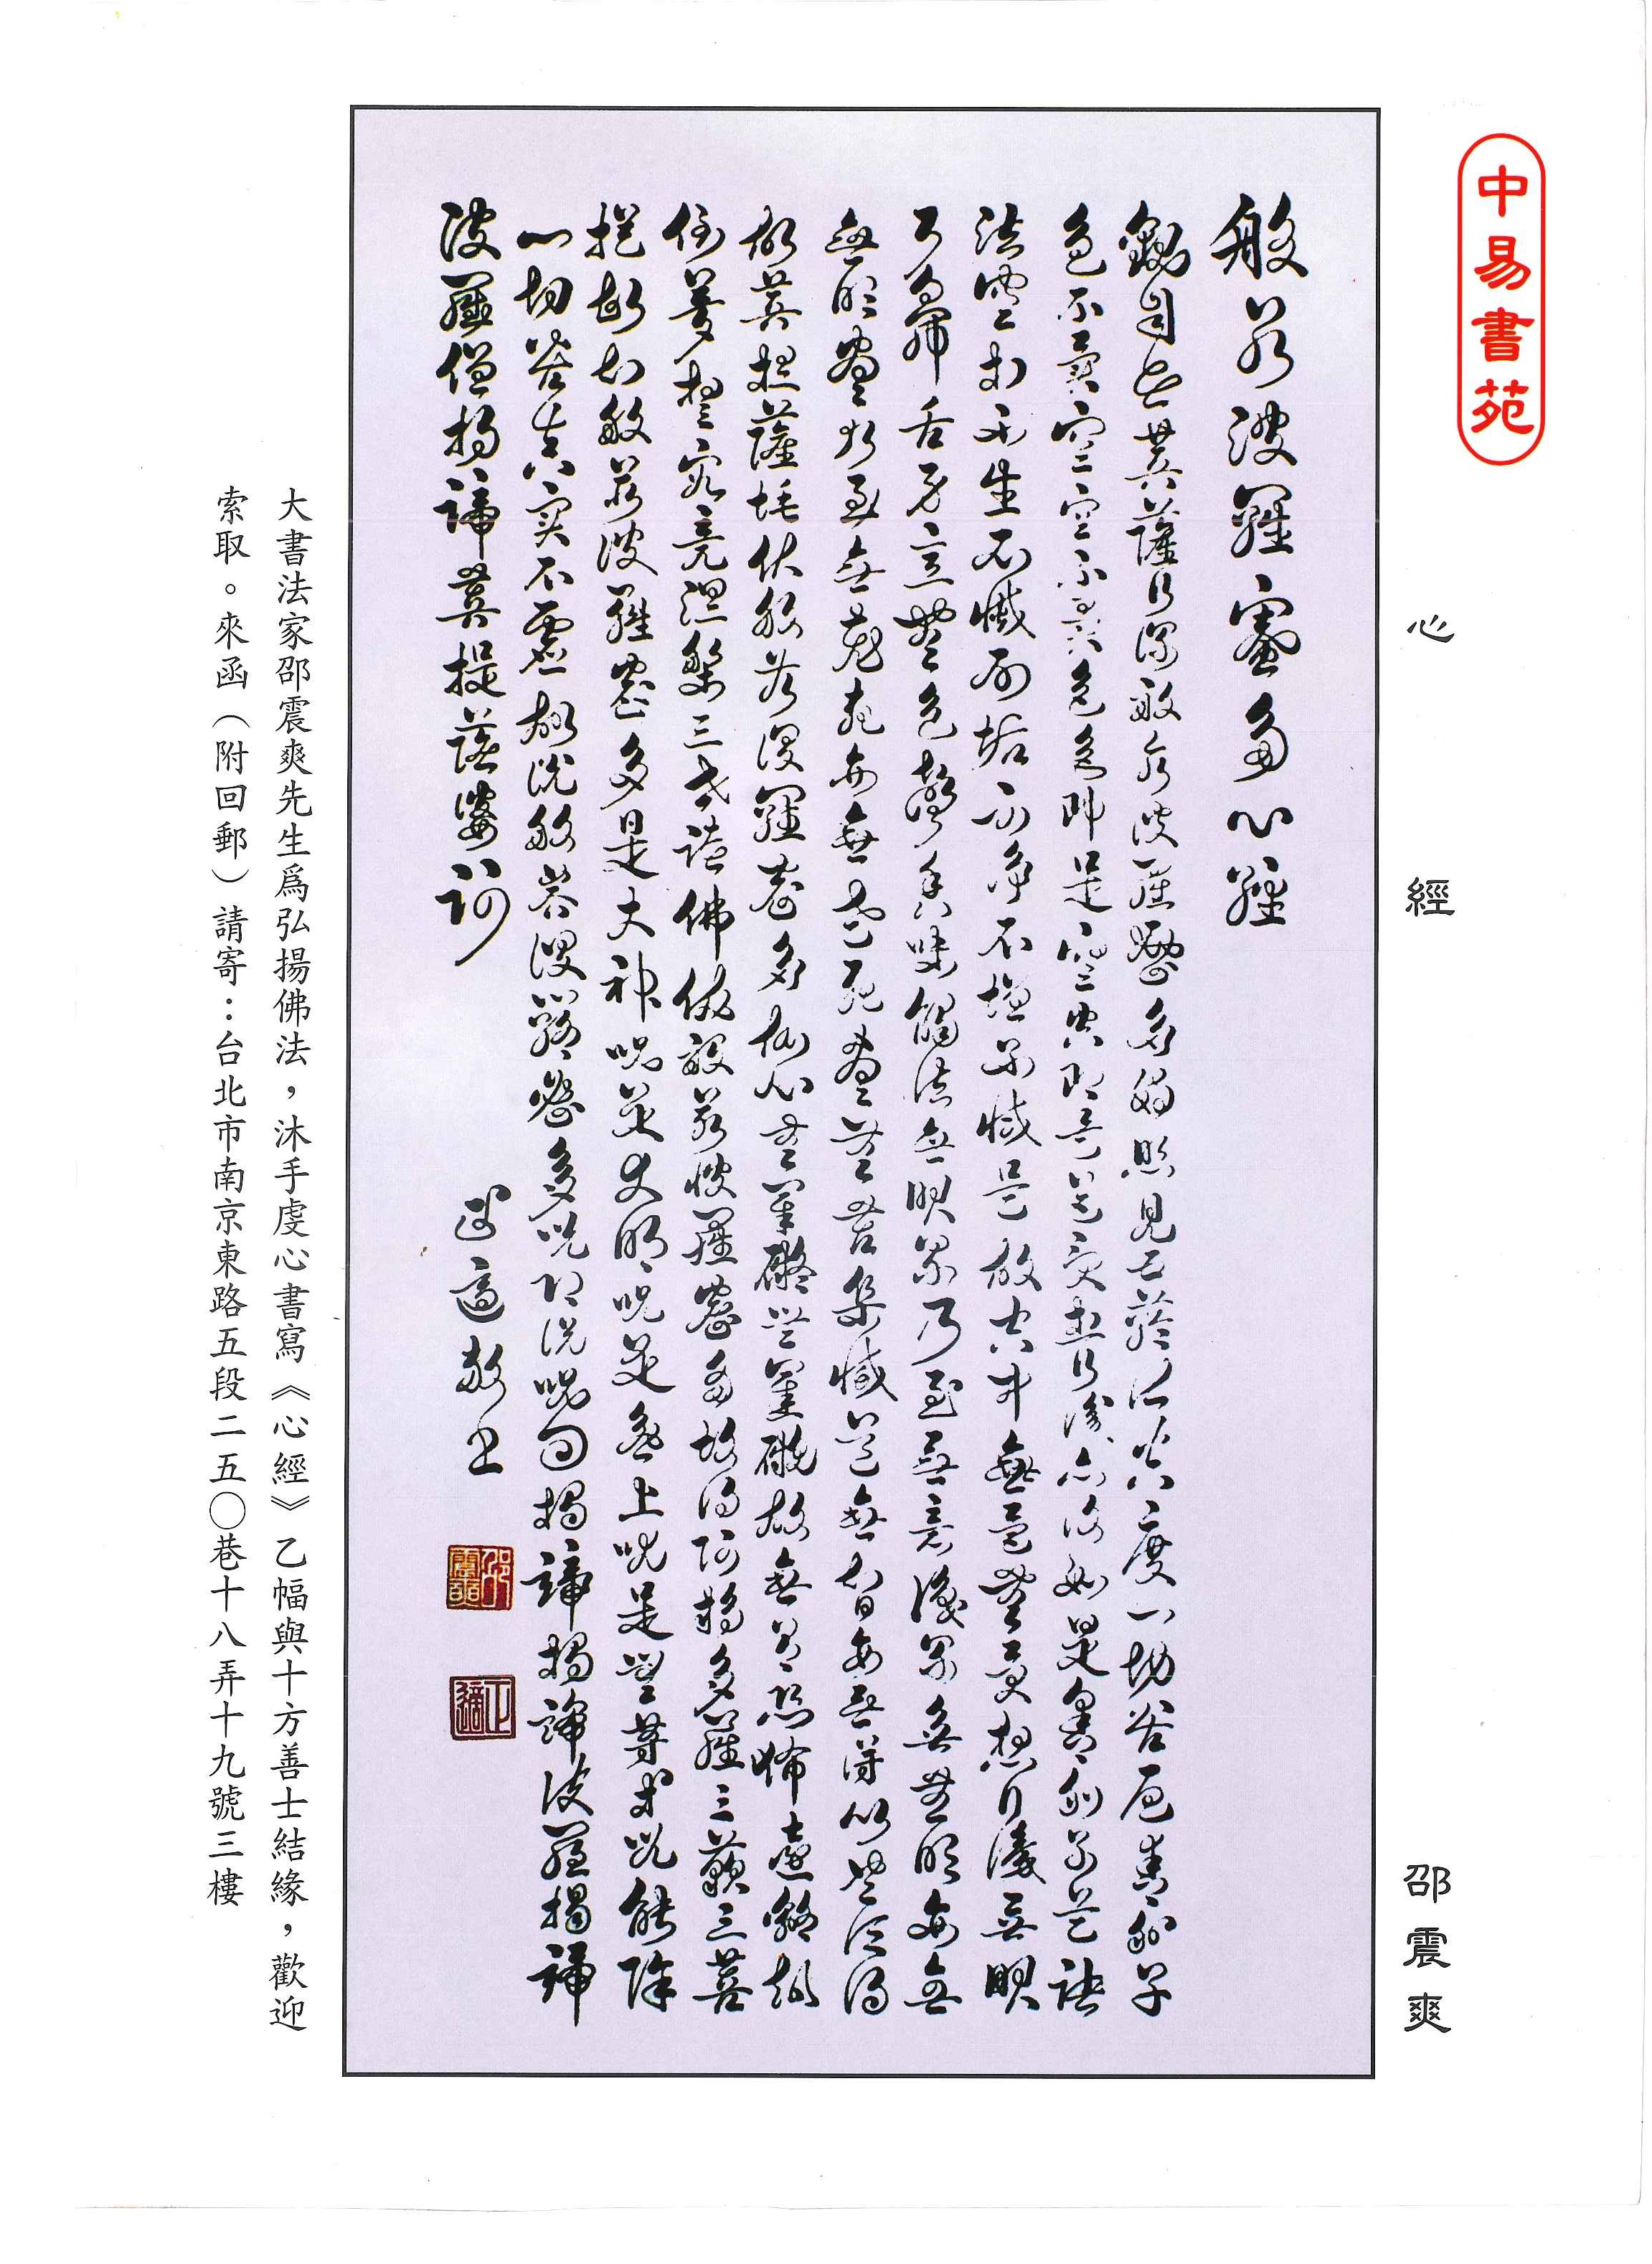 中易書苑
心經 邵震爽
般若波羅蜜多心經
觀自在菩薩行深般若波羅蜜多時照見五蘊皆空度一切苦厄舍利子
色不異空空不異色色即是空空即是色受想行識亦復如是舍利子是諸
法空相不生不滅不垢不淨不增不減是故空中無色無受想行識無眼
耳鼻舌身意無色聲香味觸法無眼界乃至無意識界無無明亦無
無明盡乃至無老死亦無老死盡無苦集滅道無智亦無得以無所得
故菩提薩埵依般若波羅蜜多故心無罣礙無罣礙故無有恐怖遠離顛
倒夢想究竟涅槃三世諸佛依般若波羅蜜多故得阿耨多羅三藐三菩
提故知般若波羅蜜多是大神咒是大明咒是無上咒是無等等咒能除
一切苦真實不虛故說般若波羅蜜多咒即說咒曰揭諦揭諦波羅揭諦
波羅僧揭諦菩提薩婆訶
正適敬書
正適
大書法家邵震爽先生爲弘揚佛法，沐手虔心書寫《心經》乙幅與十方善士結緣，歡迎
索取。來函（附回郵）請寄：台北市南京東路五段二五〇巷十八弄十九號三樓